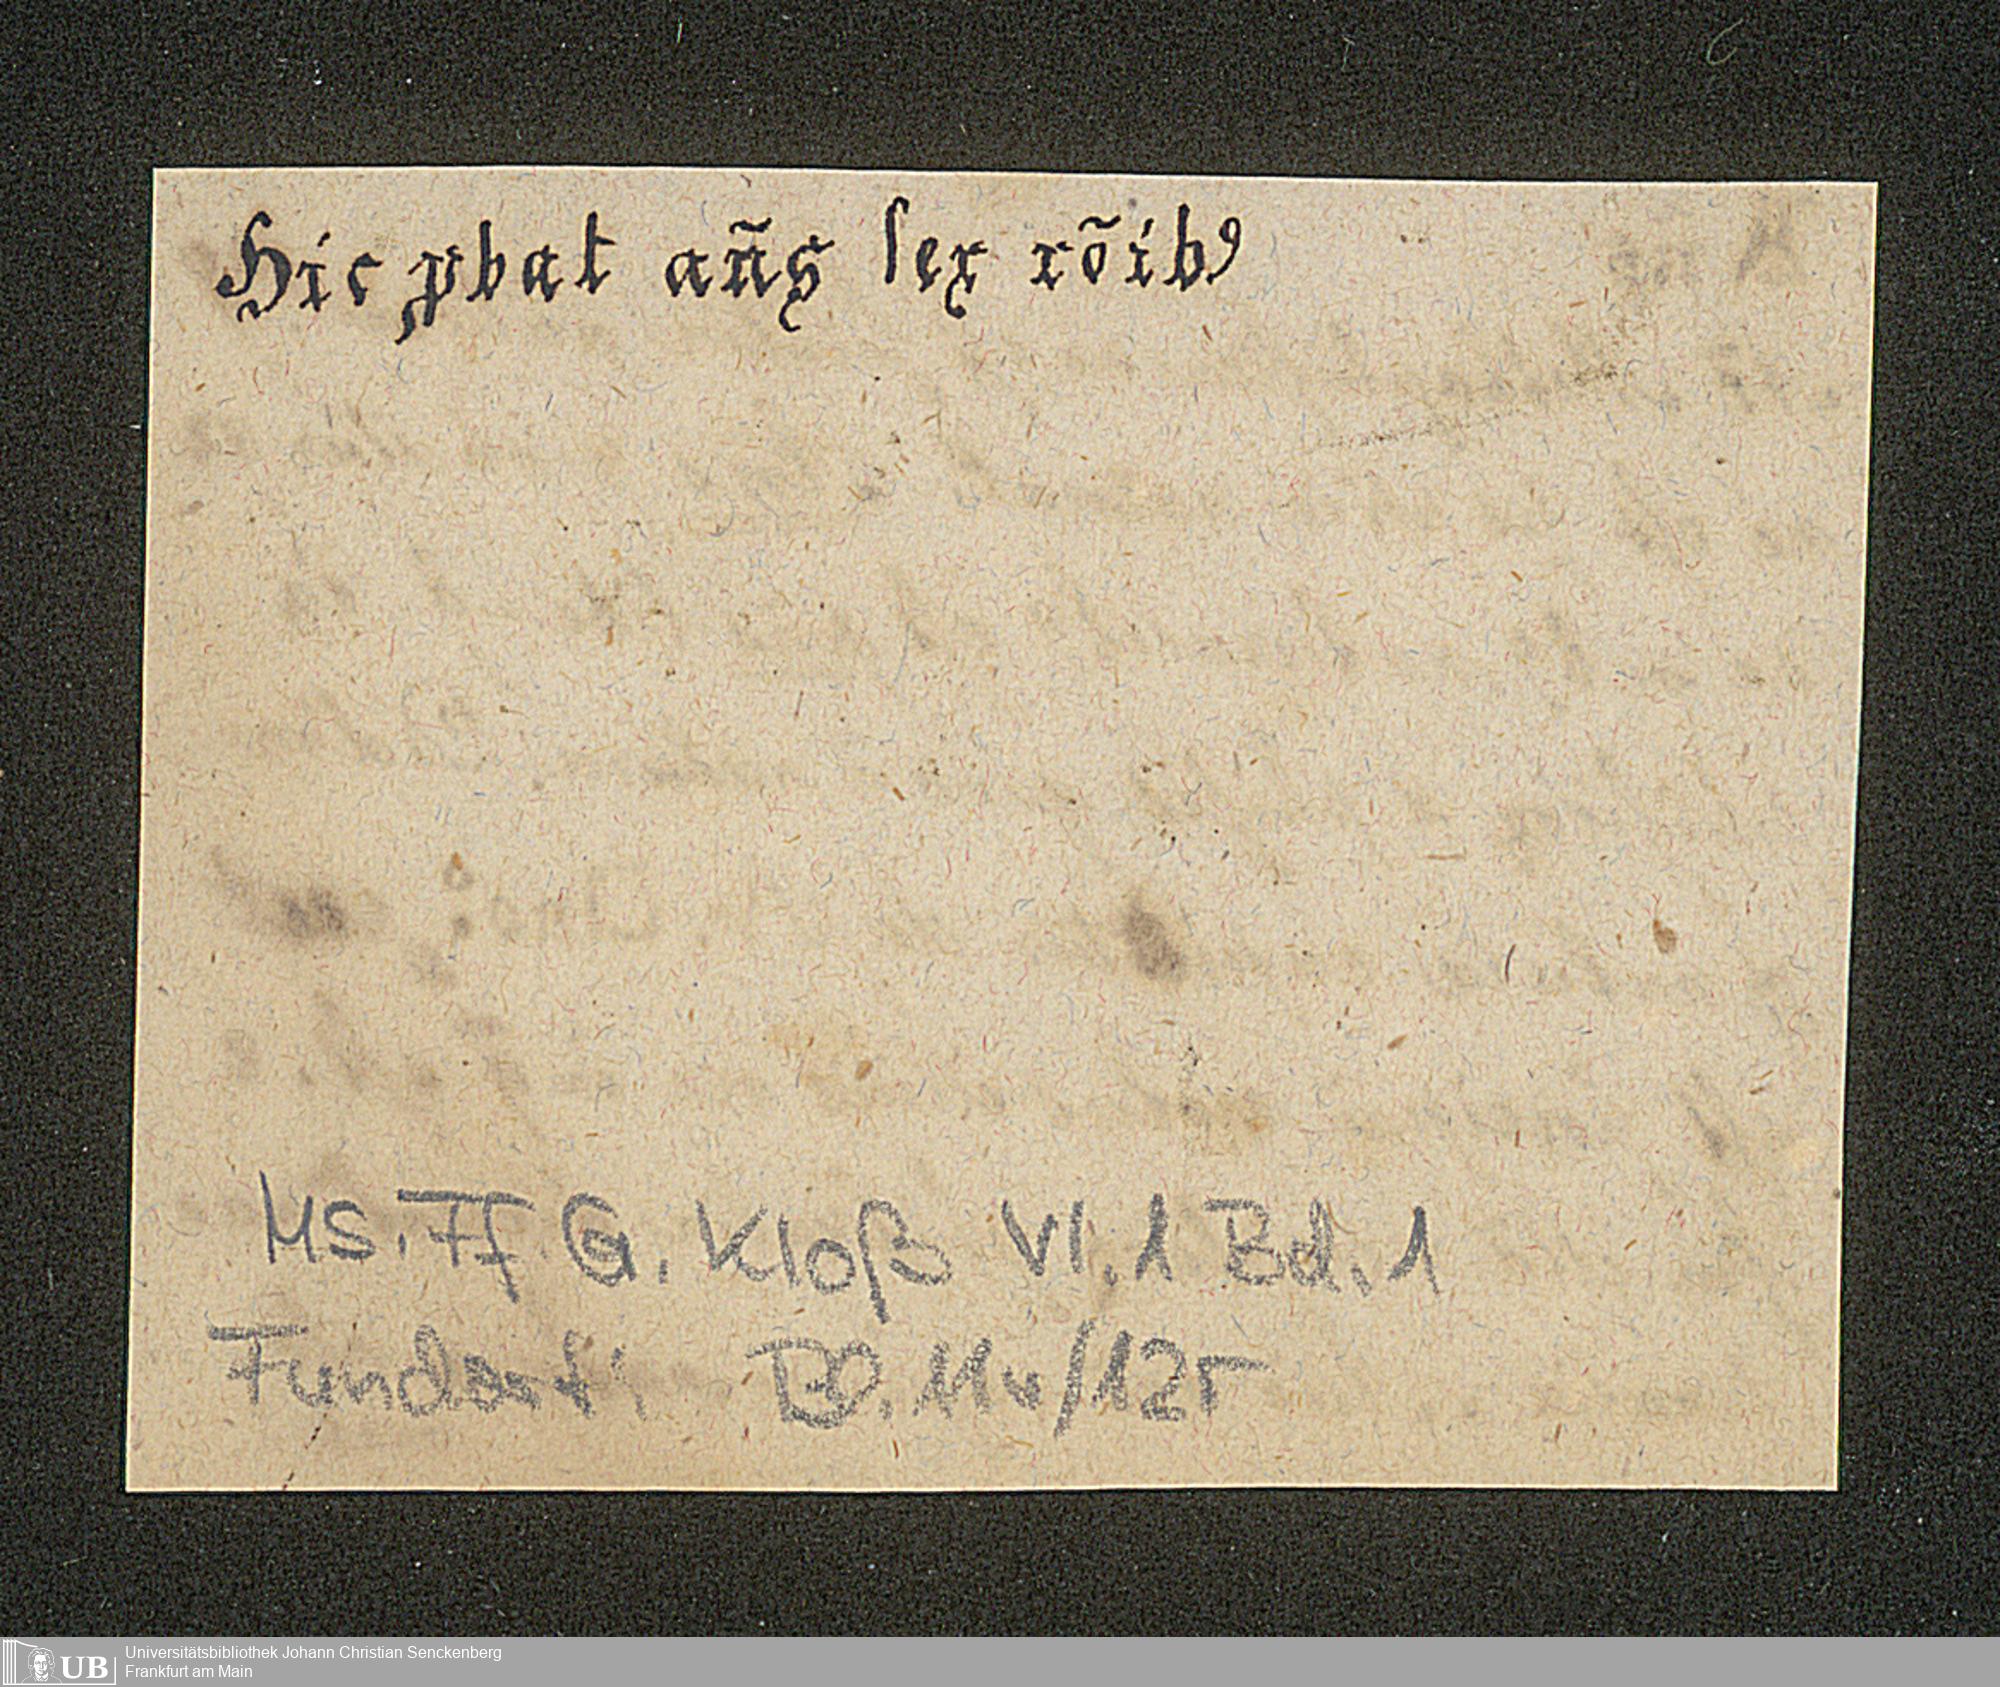 Hic ꝓbat añs sex rõibꝰ
Ms. Ff. G. Kloß VI.1 Bd.1
Fundort: Bl. 11v/12r
UB
Universitätsbibliothek Johann Christian Senckenberg
Frankfurt am Main